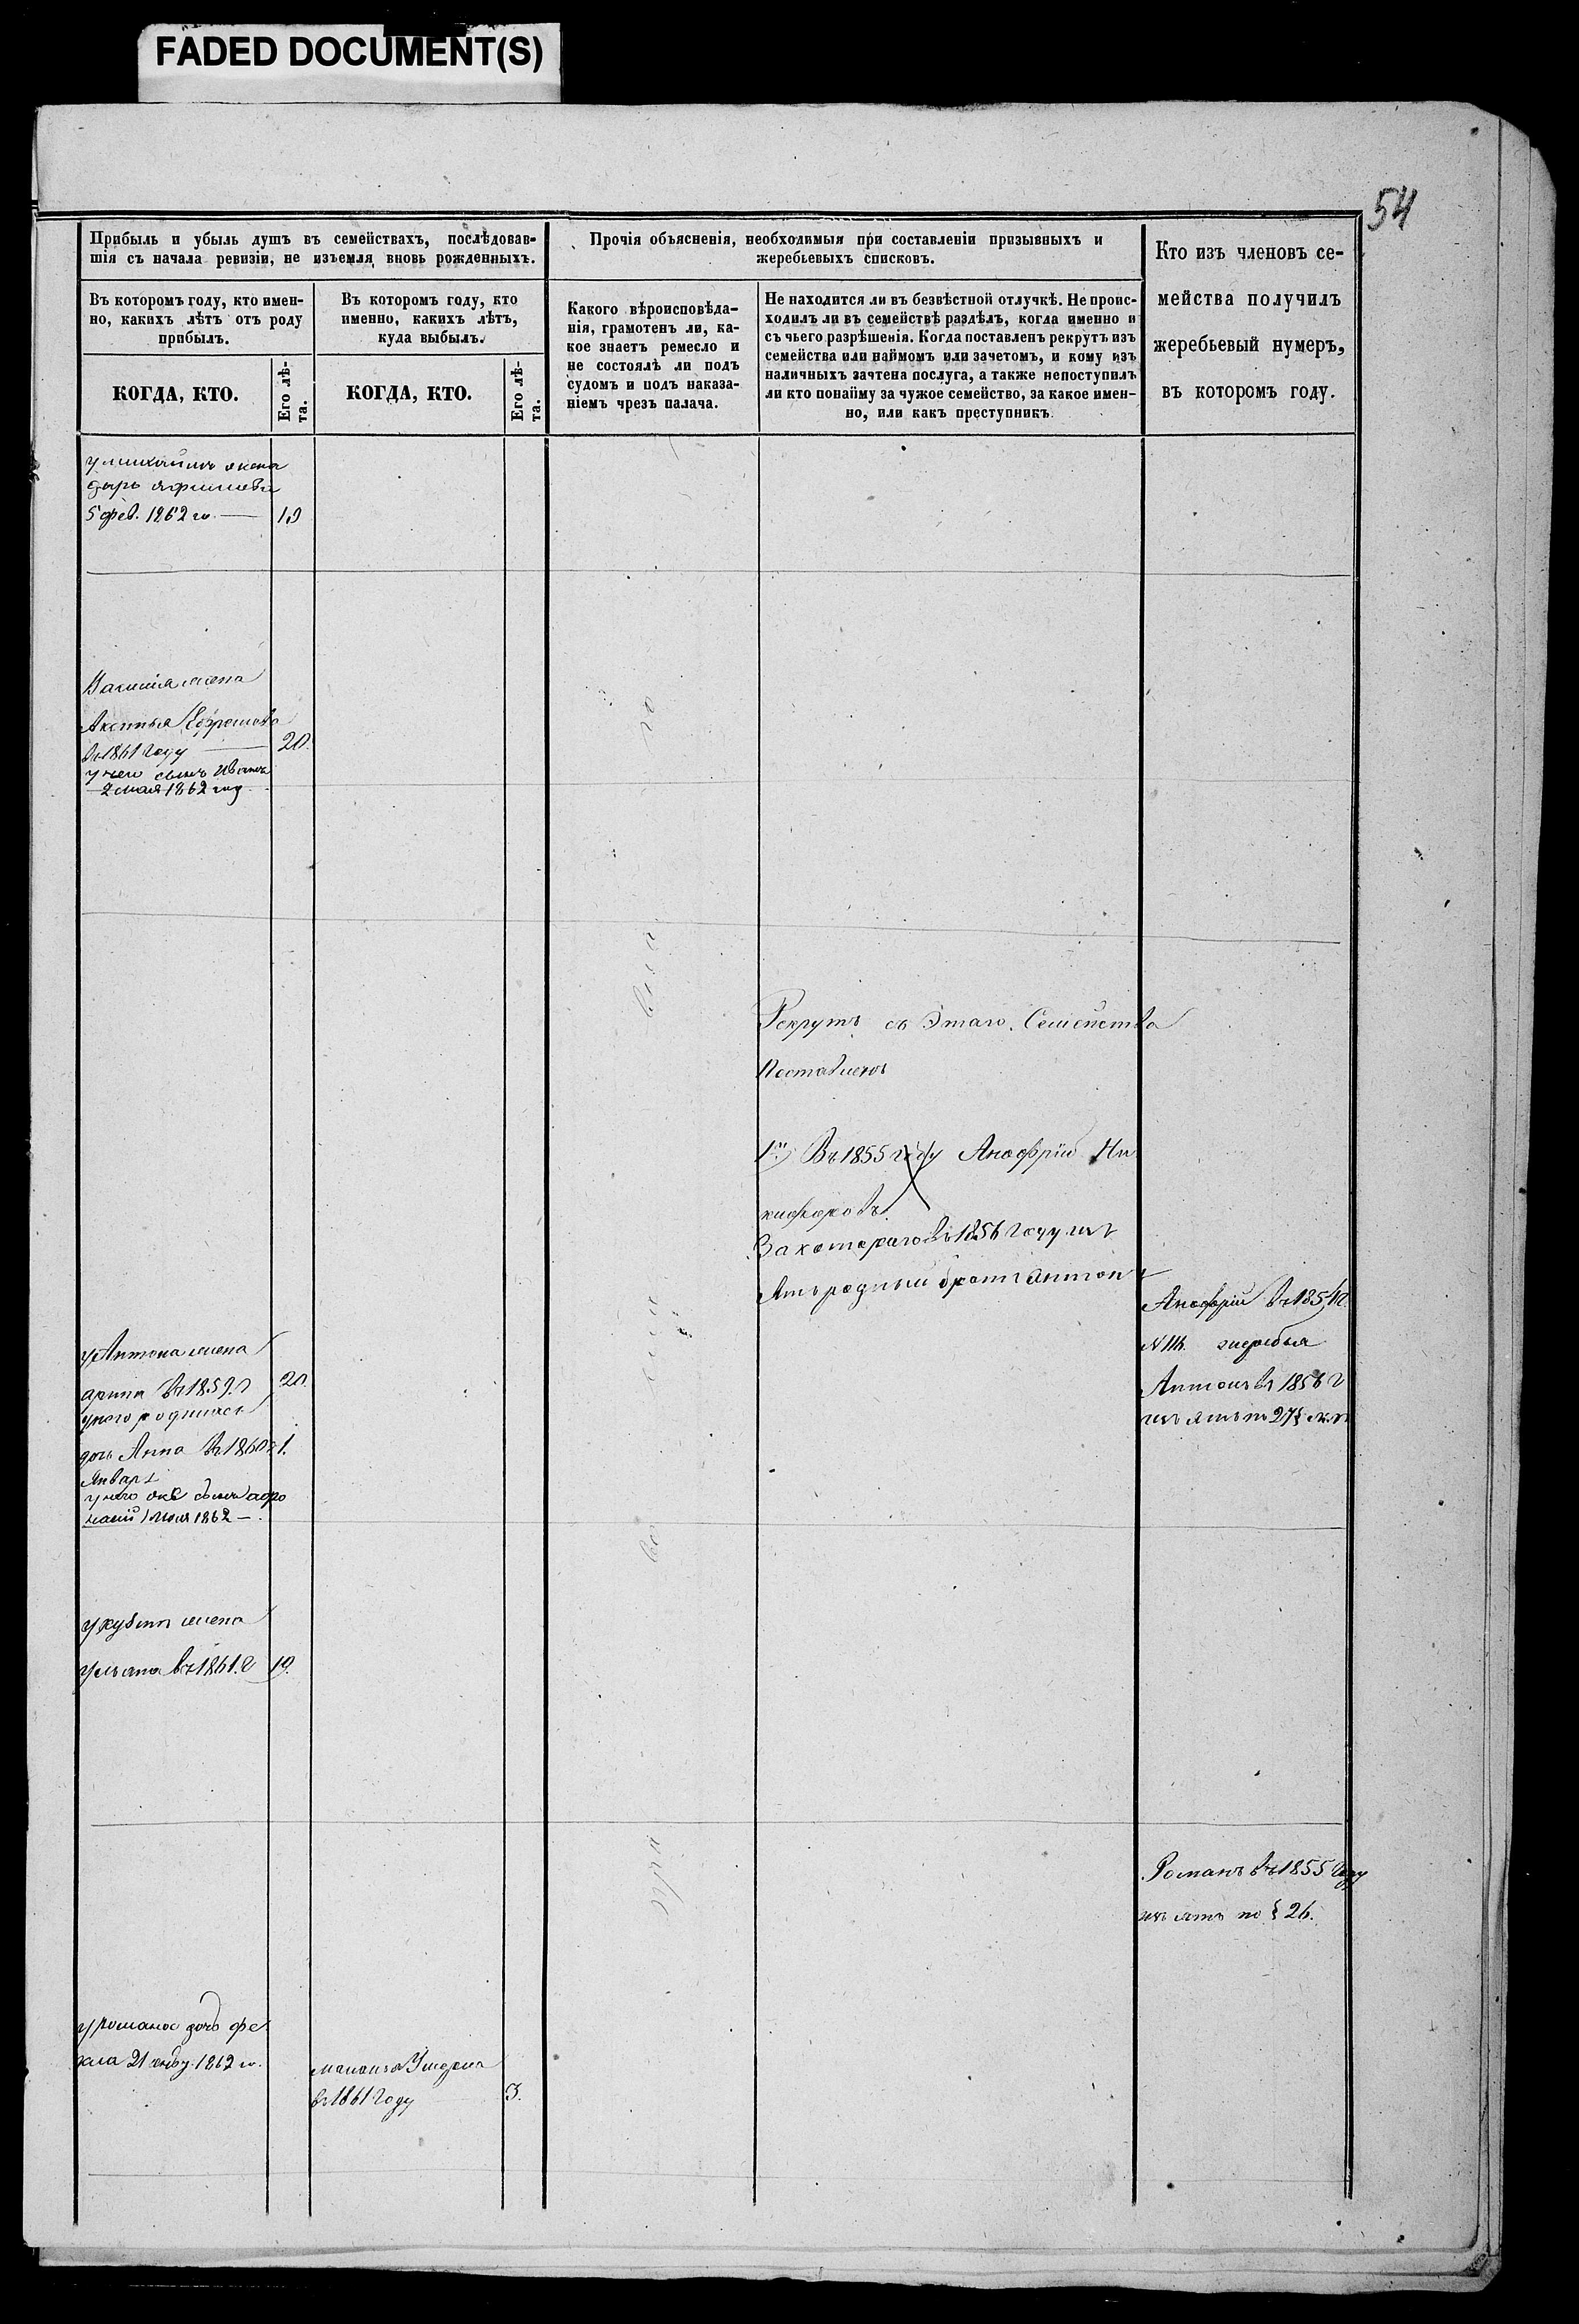 FADED DOCUMENT(S)
54
Прибыль и убыль душъ въ семействахъ, послѣдовав-
шія съ начала ревизіи, не изъемля вновь рожденныхъ.
Въ которомъ году, кто имен-
но, какихъ лѣтъ отъ роду
прибылъ.
Въ которомъ году, кто
именно, какихъ лѣтъ,
куда выбылъ.
КОГДА, КТО.
Его лѣ-
та.
КОГДА, КТО.
Его лѣ-
та.
Прочія объясненія, необходимыя при составленіи призывныхъ и
жеребьевыхъ списковъ.
Какого вѣроисповѣда-
нія, грамотенъ ли, ка-
кое знаетъ ремесло и
не состоялъ ли подъ
судомъ и подъ наказа-
ніемъ чрезъ палача.
Не находится ли въ безвѣстной отлучкѣ. Не проис-
ходилъ ли въ семействѣ раздѣлъ, когда именно и
съ чьего разрѣшенія. Когда поставленъ рекрутъ изъ
семейства или наймомъ или зачетомъ, и кому изъ
наличныхъ зачтена послуга, а также непоступилъ
ли кто понайму за чужое семейство, за какое имен-
но, или какъ преступникъ.
Кто изъ членовъ се-
мейства получилъ
жеребьевый нумеръ,
въ которомъ году.
жена
5 фев. 1862 го — 19
Василія жена
Аксинья Ефремова
въ 1861 году — 20.
у него сынъ Иванъ
2 мая 1862 год
Рекрутъ съ Этаго Семейства
Поставленъ
1й) Въ 1855 году Анофрій Ни
кифоровъ
За котораго въ 1856 году изъ
ятъ родный братъ антонъ
Анофрій въ 1854 г.
N 111. жеребья
Антонъ въ 1856 г
изъятъ по 27 §
у Антона жена
арина въ 1859. г 20.
у него родилась
дочь Анна въ 1860 г 1.
Январь
у него же сынъ афо
насий 1862 —
жена
ульяна въ 1861. г 19.
Романъ въ 1855 году
изъятъ по § 26.
у романа дочь фе
кла 21 1862 го.
въ 1861 году 3.
вос
пра